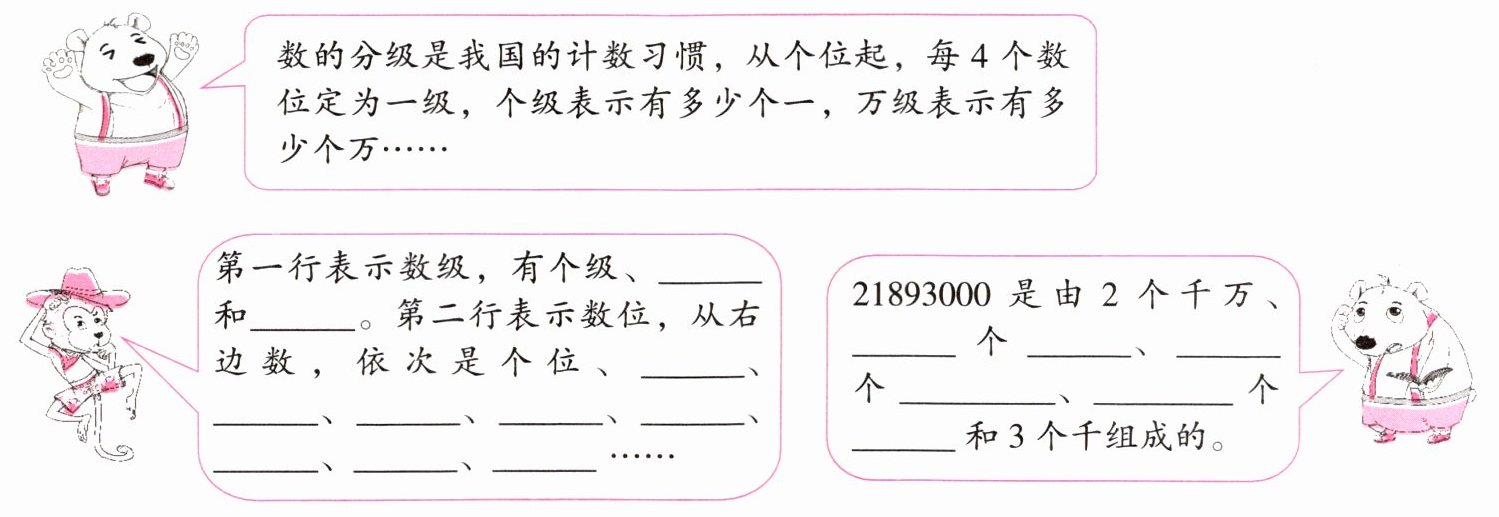 数的分级是我国的计数习惯，从个位起，每4个数
位定为一级，个级表示有多少个一，万级表示有多
少个万……
第一行表示数级，有个级、______
和______。第二行表示数位，从右
边数，依次是个位、______、
______、______、______、______、
______、______、______……
21893000是由2个千万、
______个______、______
个_________、________个
______和3个千组成的。